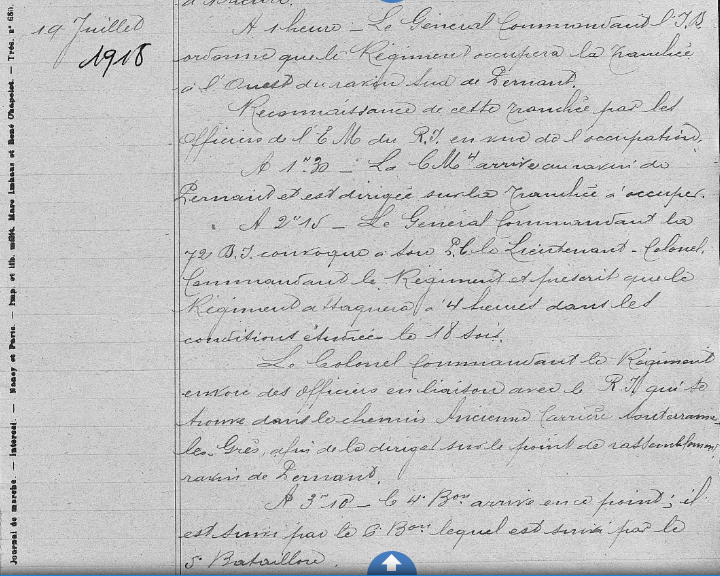 19 Juillet
1918
A 1 heure - Le Général Commandant l'I.D
ordonne que le Régiment occupera la tranchée
à l'Ouest du ravin Sud de Pernant.
Reconnaissance de cette tranchée par les
Officiers de l'E M du R.I. en vue de l'occupation.
A 1h30 - La C M 4 arrive au ravin de
Pernant et est dirigée sur la tranchée à occuper.
A 2h15 - Le Général Commandant la
72 B.I. convoque à son P.C. le Lieutenant-Colonel
Commandant le Régiment et prescrit que le
Régiment attaquera à 4 heures dans les
conditions étudiées le 18 soir.
Le Colonel Commandant le Régiment
envoie des Officiers en liaison avec le R.I. qui se
trouve dans le chemin Ancienne Carrière souterraine
les Grès, afin de le diriger sur le point de rassemblement
ravin de Pernant.
A 3h10 - le 4e Bon arrive en ce point; il
est suivi par le 6e Bon lequel est suivi par le
5e Bataillon.
Journal de marche. — Intérieur. — Nancy et Paris. — Imp. et lib. milit. Marc Imhaus et René Chapelot. — Trés. n° 680.